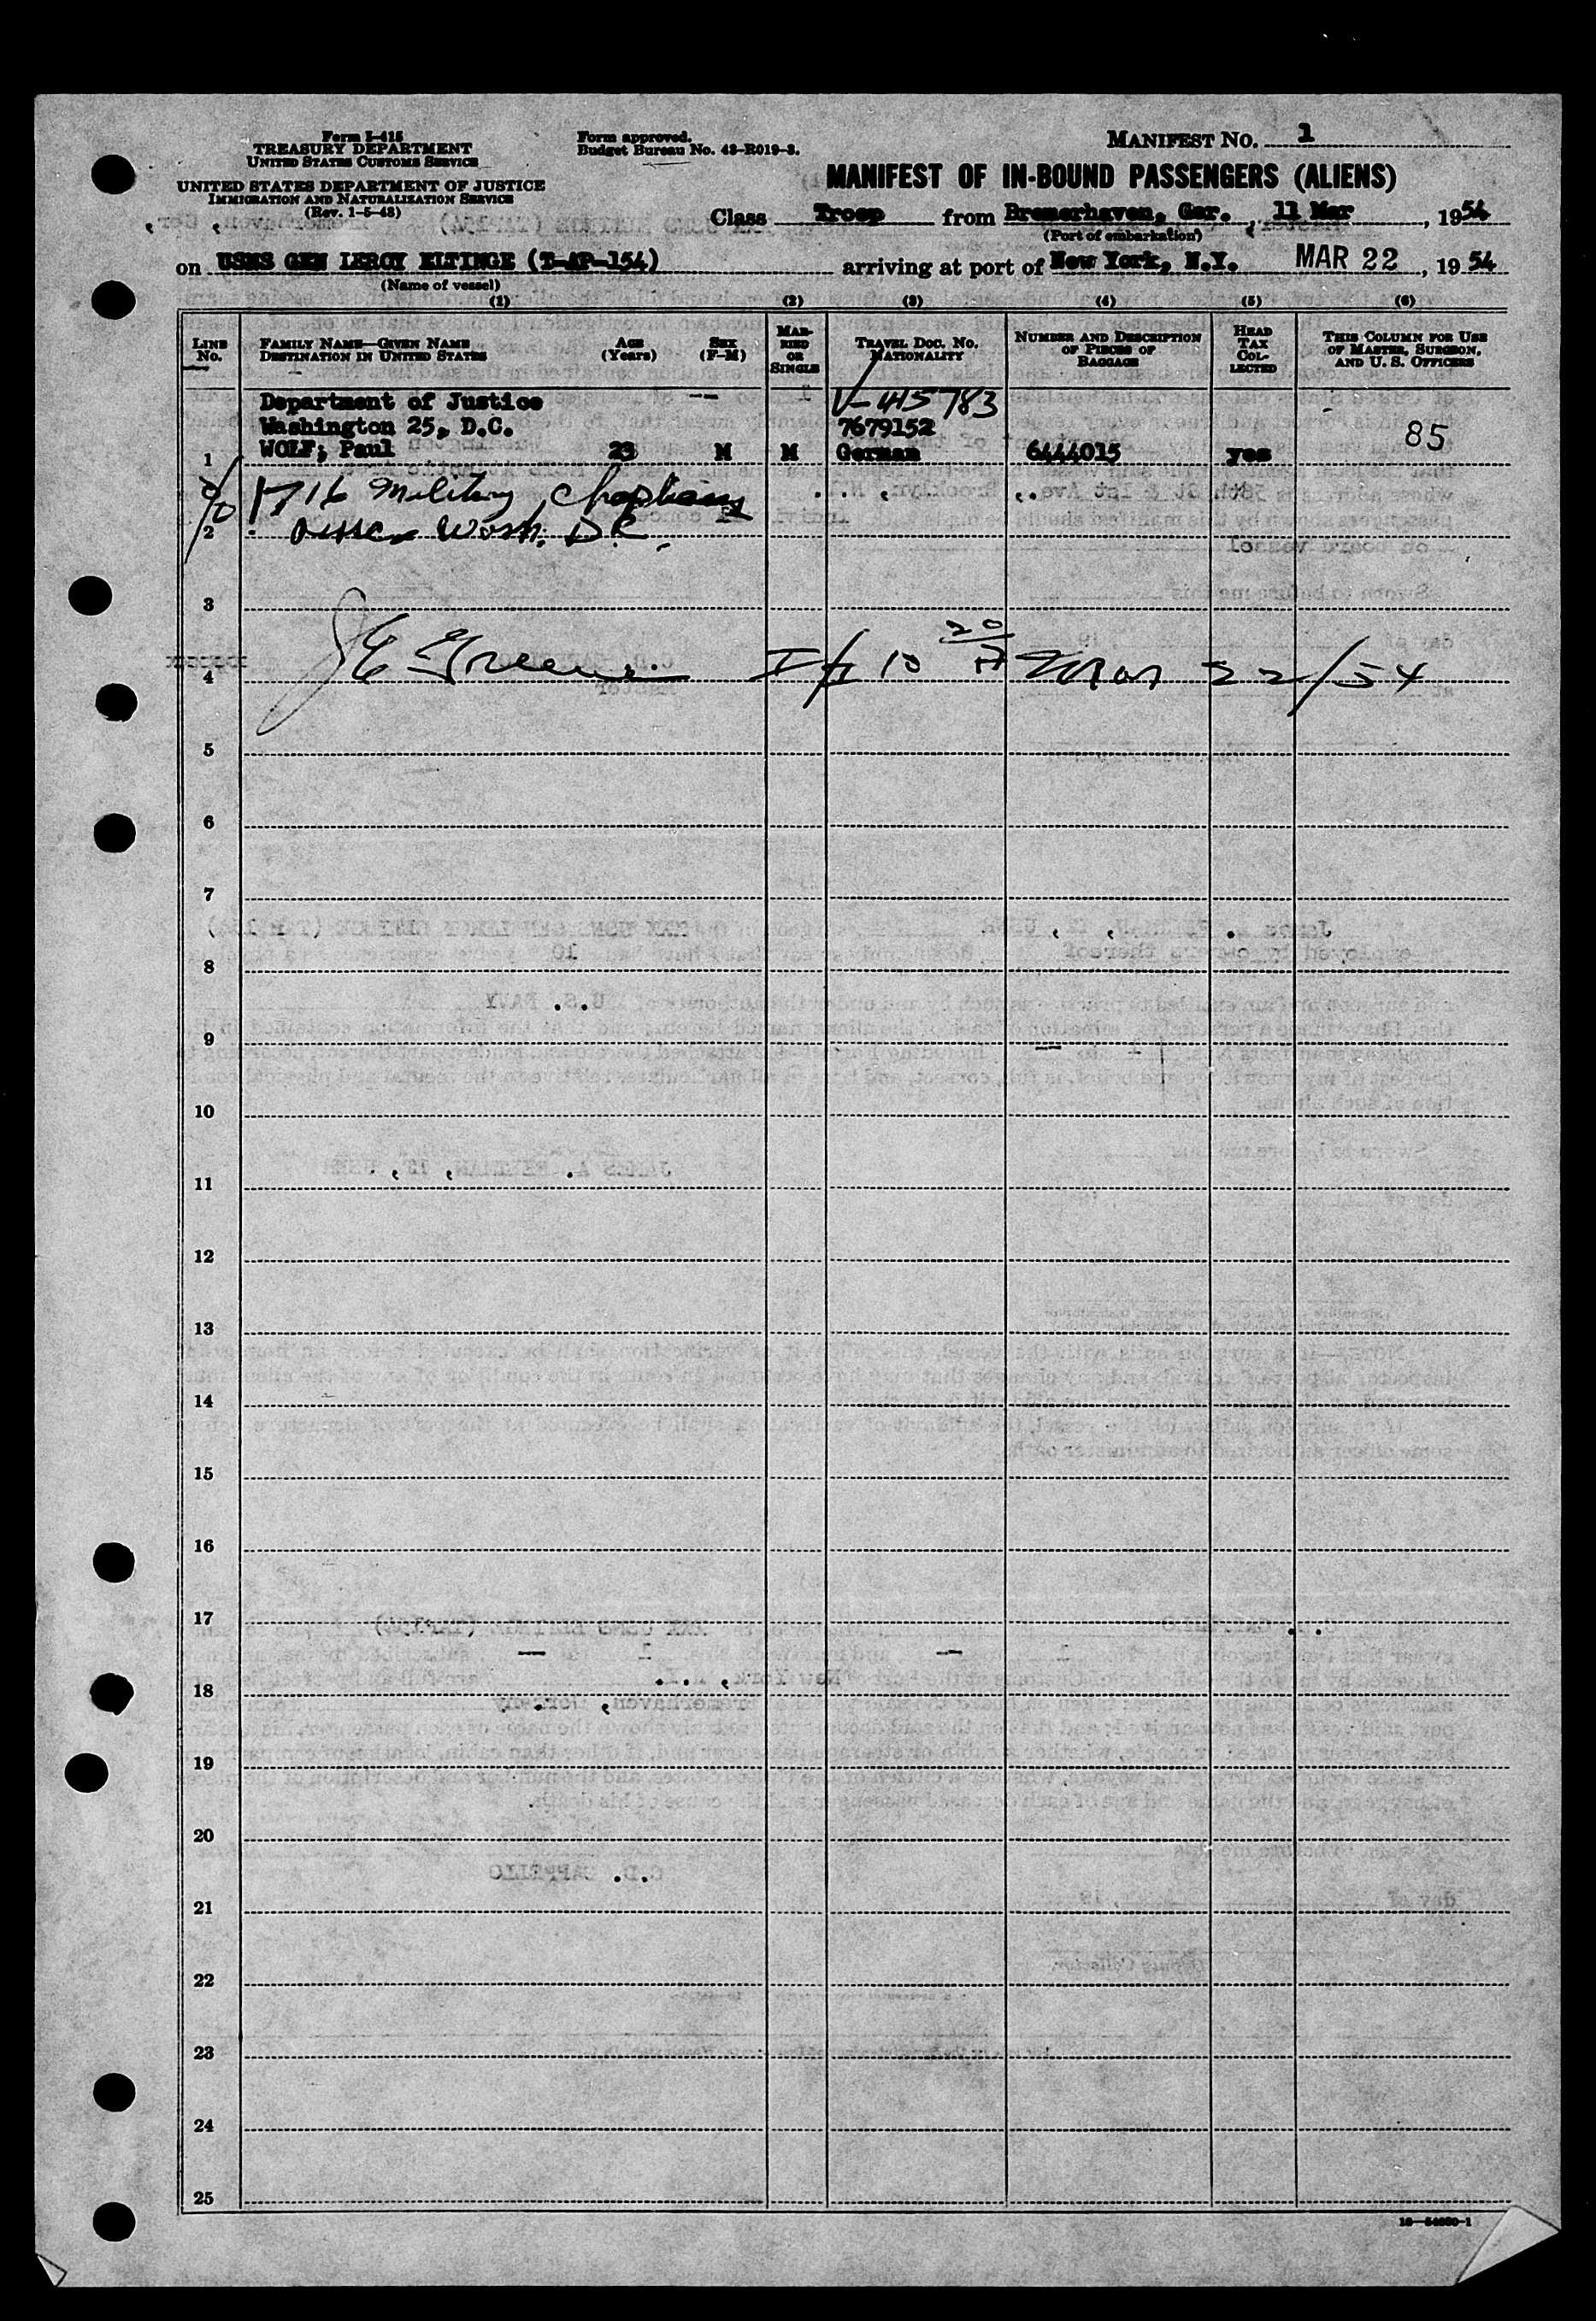 Form I-415
TREASURY DEPARTMENT
UNITED STATES CUSTOMS SERVICE
UNITED STATES DEPARTMENT OF JUSTICE
IMMIGRATION AND NATURALIZATION SERVICE
(Rev. 1-5-48)
Form approved.
Budget Bureau No. 43-R019-3.
MANIFEST NO. 1
MANIFEST OF IN-BOUND PASSENGERS (ALIENS)
Class Troop from Bremerhaven, Ger., 11 Mar, 1954
(Port of embarkation)
on USNS GEN LEROY ELTINGE (T-AP-154) arriving at port of New York, N.Y. MAR 22, 1954
(Name of vessel)
(1) (2) (3) (4) (5) (6)
LINE No. FAMILY NAME—GIVEN NAME DESTINATION IN UNITED STATES AGE (Years) SEX (F-M) MARRIED OR SINGLE TRAVEL DOC. NO. NATIONALITY NUMBER AND DESCRIPTION OF PIECES OF BAGGAGE HEAD TAX COLLECTED THIS COLUMN FOR USE OF MASTER, SURGEON, AND U. S. OFFICERS
Department of Justice -- V-415783
Washington 25, D.C. 7679152
1 WOLF; Paul 23 M M German 6444015 yes 85
c/o 1716 Military Chaplains
2 Wash. D.C.
3
4 Green Mar 22/54
5
6
7
8
9
10
11
12
13
14
15
16
17
18
19
20
21
22
23
24
25